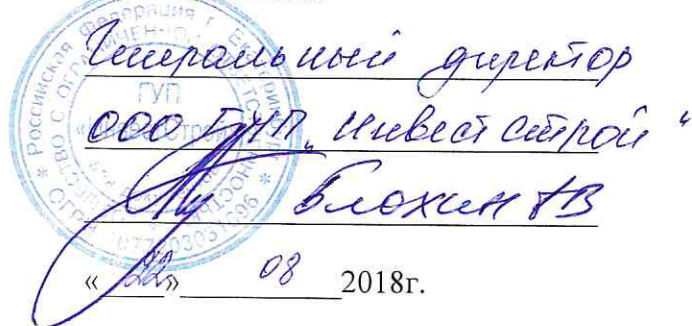 Генеральный директор
ООО ГУП „Инвест Строй“
Блохин АВ
«22» 08 2018г.
Российская Федерация г. Е
ГУП